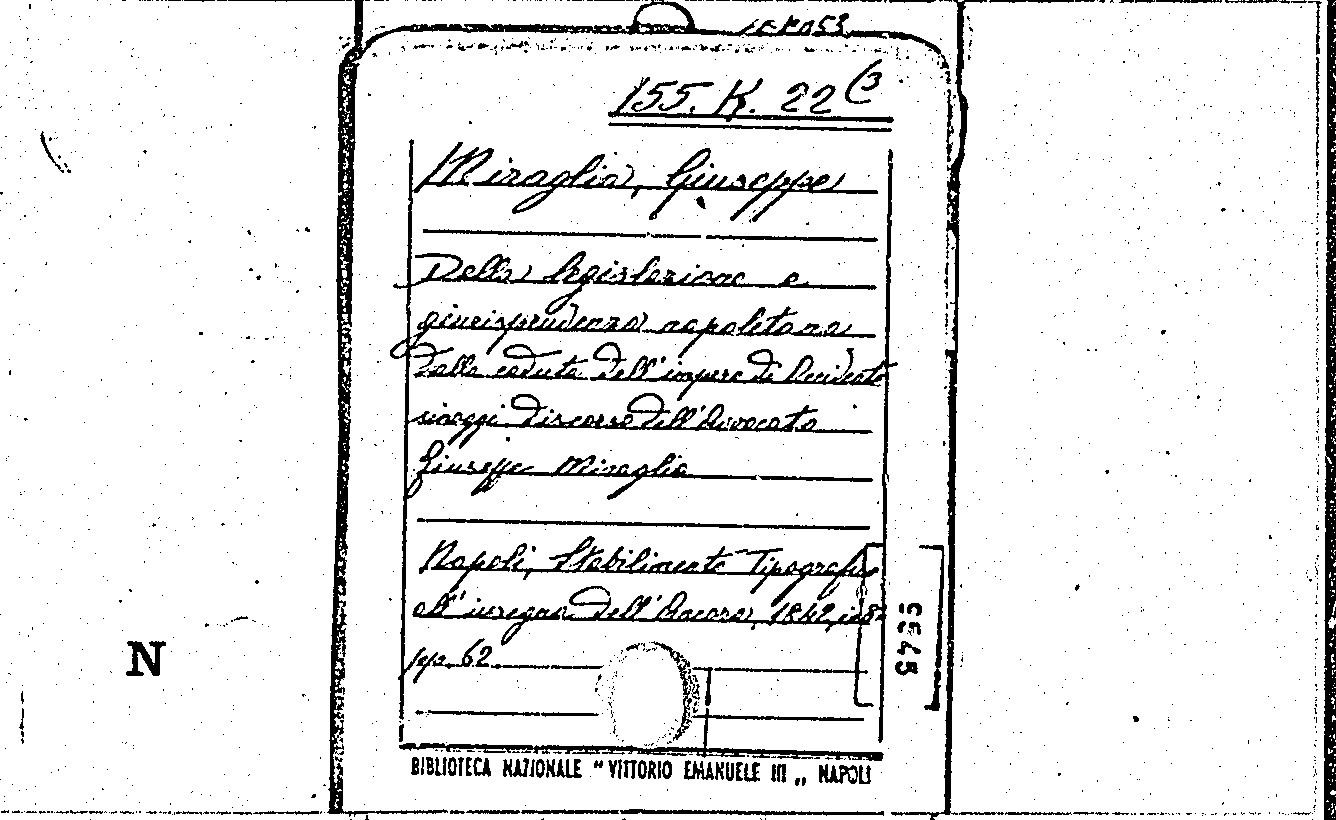 155. K. 22 (3
Miraglia, Giuseppe
Della legislazione e
giurisprudenza napoletana
dalla caduta dell'impero di Occidente
sinoggi discorso dell'Avvocato
Giuseppe Miraglia
Napoli, Stabilimento Tipografico
all'insegna dell'Ancora, 1842, in 8°
pp. 62
N
BIBLIOTECA NAZIONALE "VITTORIO EMANUELE III„ NAPOLI